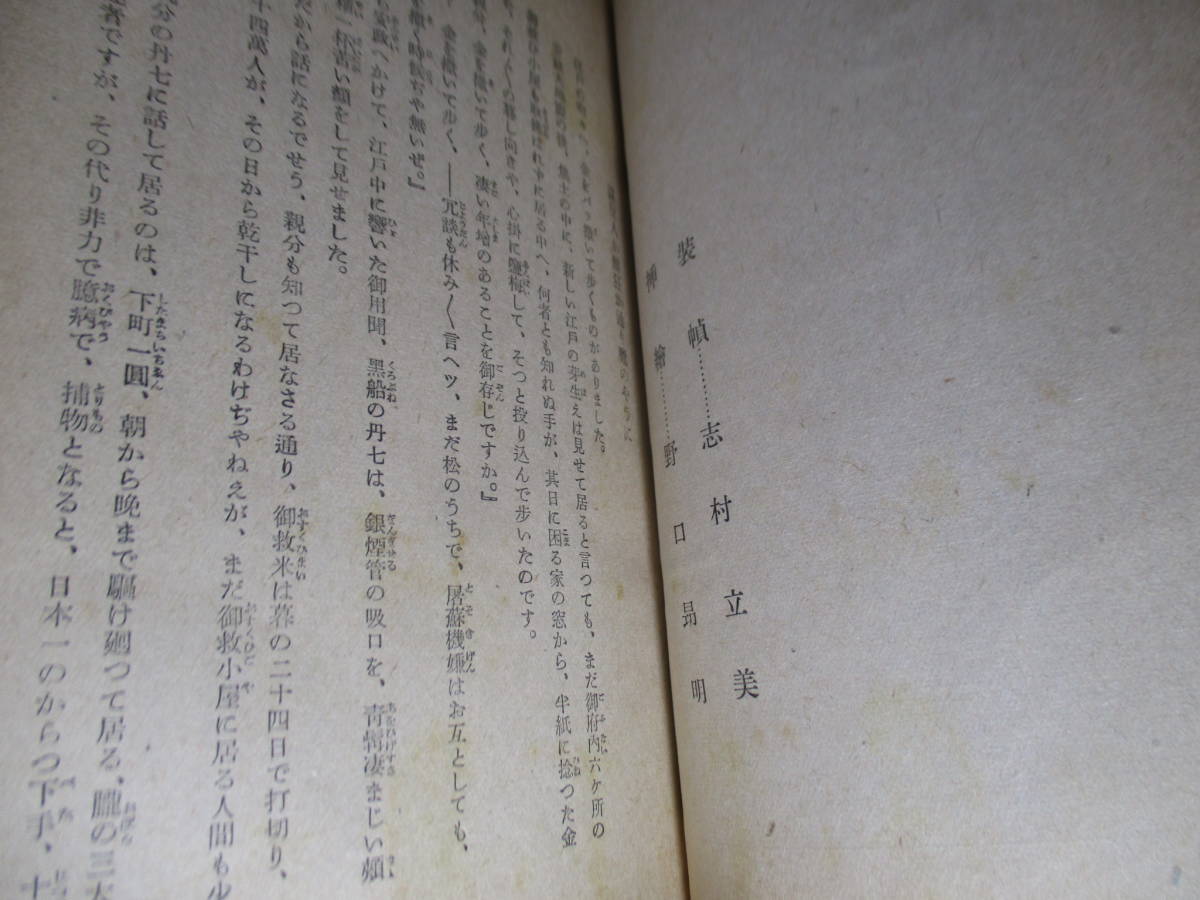 装幀………志村立美
挿繪………野口昂明
へ、金をバラ撒いて歩くものがありました。
の後、焦土の中に、新しい江戸の芽生えは見せて居ると言つても、まだ御府内六ケ所の
小屋も取拂はれずに居る中へ、何者とも知れぬ手が、其日に困る家の窓から、半紙に捻つた金
それ〴〵の暮し向きや、心掛に鹽梅して、そつと投り込んで歩いたのです。
金を撒いて歩く、凄い年増のあることを御存じですか。』
金を撒いて歩く、――冗談も休み〳〵言ヘッ、まだ松のうちで、屠蘇機嫌はお互としても、
を撒く時候ぢや無いぜ。』
へかけて、江戸中に響いた御用聞、黒船の丹七は、銀煙管の吸口を、青髯凄まじい頬
一杯苦い顔をして見せました。
だから話になるでせう、親分も知つて居なさる通り、御救米は暮の二十四日で打切り、
十四萬人が、その日から乾干しになるわけぢやねえが、まだ御救小屋に居る人間も少
分の丹七に話して居るのは、下町一圓、朝から晩まで驅け廻つて居る、朧の三太
者ですが、その代り非力で臆病で、捕物となると、日本一のからつ下手、十